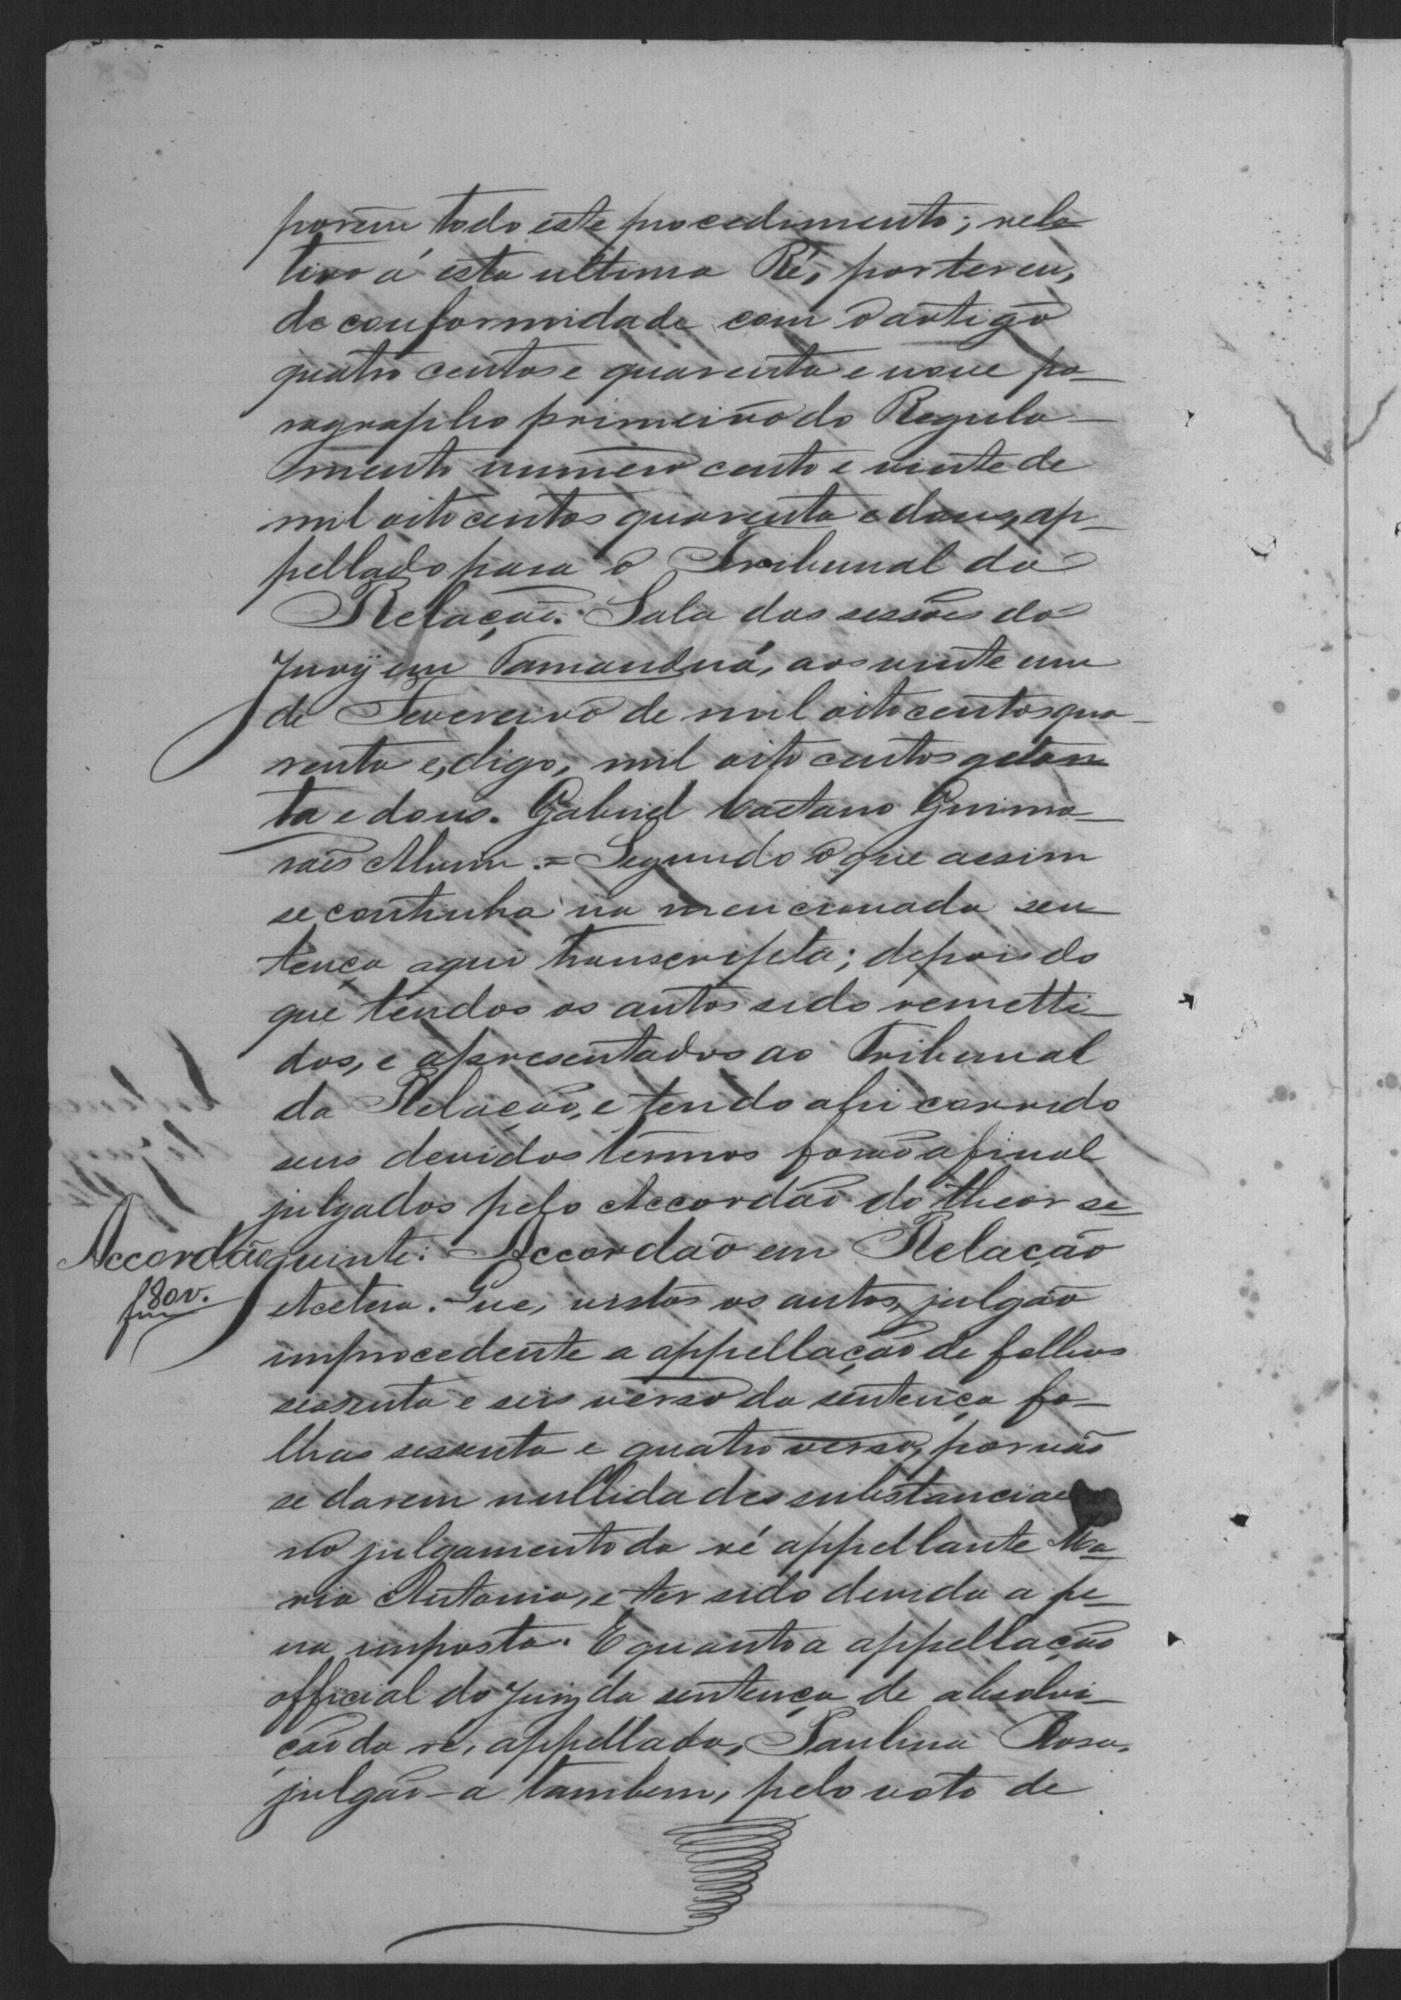 porem todo este procedimento; rela
tivo á esta ultima Ré, por ter eu,
de conformidade com o artigo
quatro centos e quarenta e nove pa-
ragrapho primeiro do Regula-
mento numero cento e vinte de
mil oito centos quarenta e dous, ap-
pellado para o Tribunal da
Relação. Sala das sessões do
Jury em Tamanduá, aos vinte um
de Fevereiro de mil oito centos qua-
renta e, digo, mil oito centos oitenta
e dous. Gabriel Caetano Guima-
rães Alvim. = Segundo o que assim
se continha na mencionada sen-
tença aqui transcripta; depois do
que tendos os autos sido remetti-
dos, e apresentados ao Tribunal
da Relação, e tendo ahi corrido
seus devidos termos forão afinal
julgados pelo Accordão do theor se-
Accordão guinte: Accordão em Relação
f 80v. etcetera. Que, vistos os autos, julgão
improcedente a appellação de folhas
sessenta e seis verso da sentença fo-
lhas sessenta e quatro verso, por não
se darem nullidades substanciaes
no julgamento da ré appellante Ma-
ria Antonia, e ter sido devida a pe-
na imposta. E quanto a appellação
official do Juiz da sentença de absolvi-
ção da ré, appellada, Paulina Rosa,
julgão-a tambem, pelo voto de